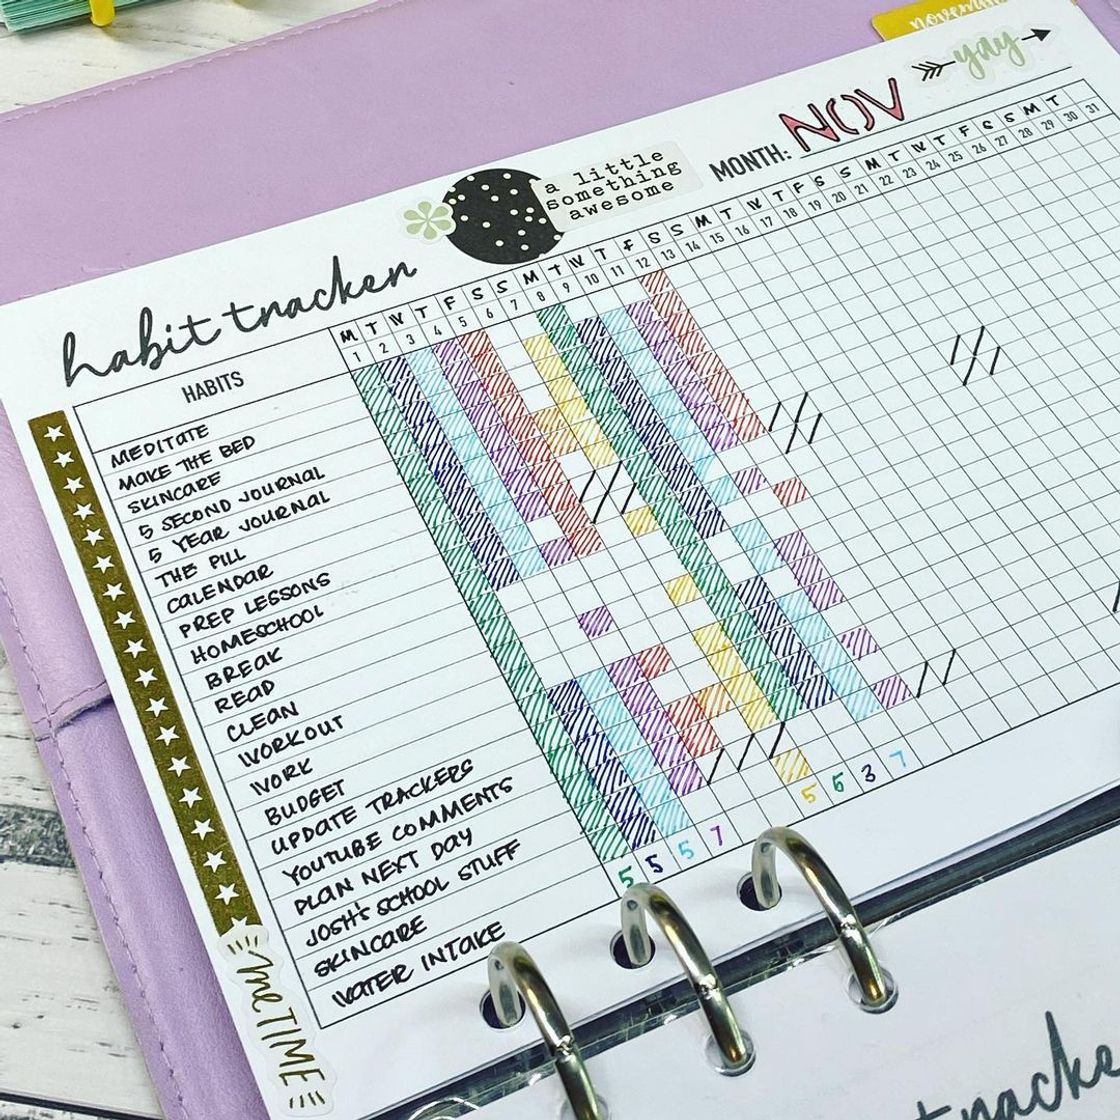 november
yay
NOV
MONTH:
a little
something
awesome
habit tracker
M T W T F S S M T W T F S S M T W T F S S M T W T F S S M T
1 2 3 4 5 6 7 8 9 10 11 12 13 14 15 16 17 18 19 20 21 22 23 24 25 26 27 28 29 30 31
HABITS
MEDITATE
MAKE THE BED
SKINCARE
5 SECOND JOURNAL
5 YEAR JOURNAL
THE PILL
CALENDAR
PREP LESSONS
HOMESCHOOL
BREAK
READ
CLEAN
WORKOUT
WORK
BUDGET
UPDATE TRACKERS
YOUTUBE COMMENTS
PLAN NEXT DAY
JOSH'S SCHOOL STUFF
SKINCARE
WATER INTAKE
5 5 5 7 5 6 3 7
me TIME
tracke